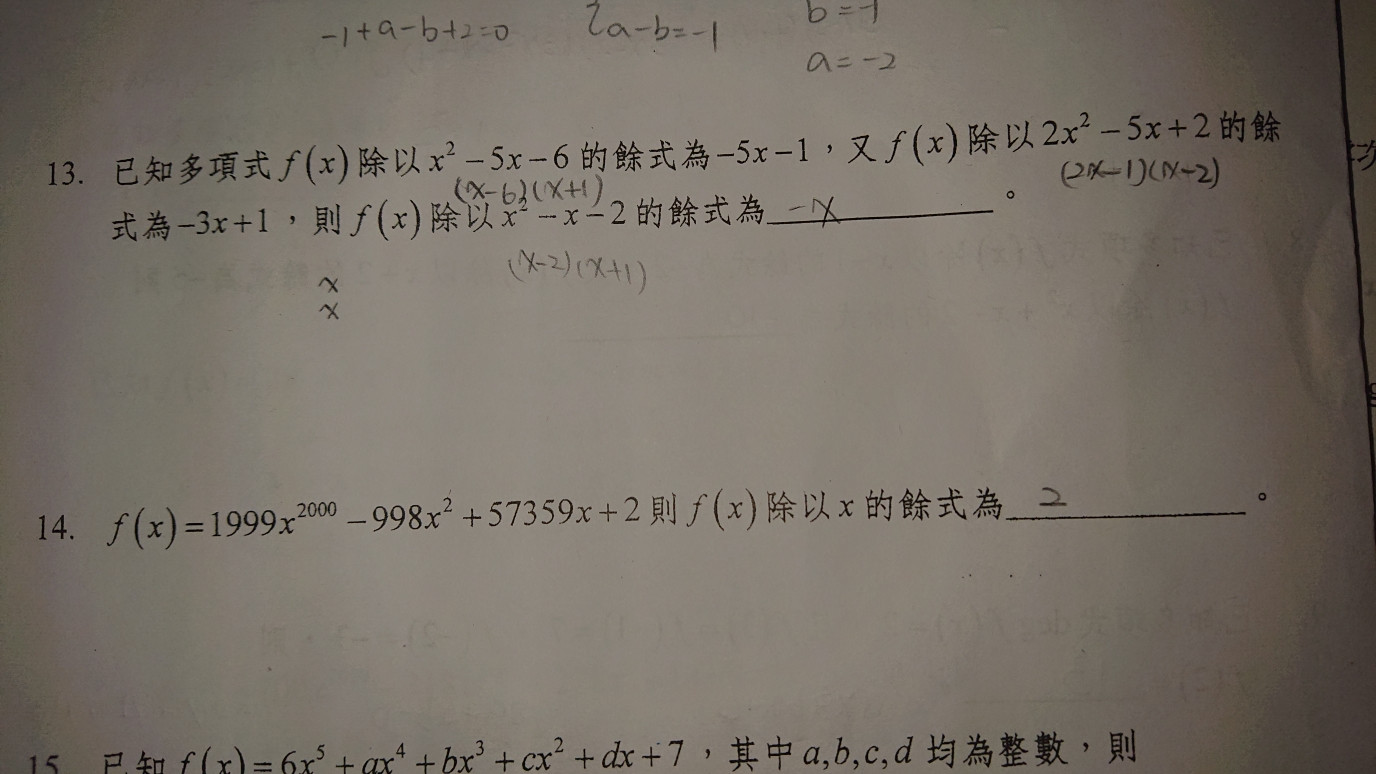 -1+a-b+2=0 {a-b=-1 b=-1
a=-2
13. 已知多項式 f(x) 除以 x² -5x-6 的餘式為 -5x-1，又 f(x) 除以 2x² -5x+2 的餘
(x-6)(x+1) (2x-1)(x-2)
式為 -3x+1，則 f(x) 除以 x² -x-2 的餘式為 -x 。
(x-2)(x+1)
x
x
14. f(x)=1999x²⁰⁰⁰ -998x² +57359x+2 則 f(x) 除以 x 的餘式為 2 。
15 已知 f(x)=6x⁵ +ax⁴ +bx³ +cx² +dx+7，其中 a,b,c,d 均為整數，則